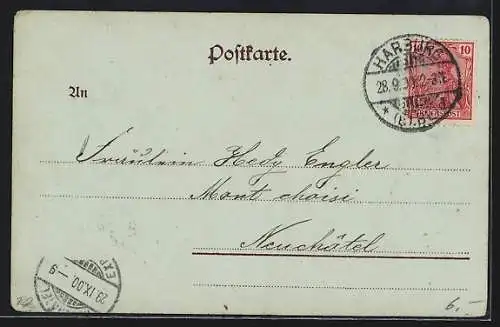 Postkarte.
10
HARBURG
28.9.
(ELB)
REICHSPOST
An
Fräulein Hedy Engler
Mont choisi
Neuchâtel
29 IX.00.—9
EXP
6.-